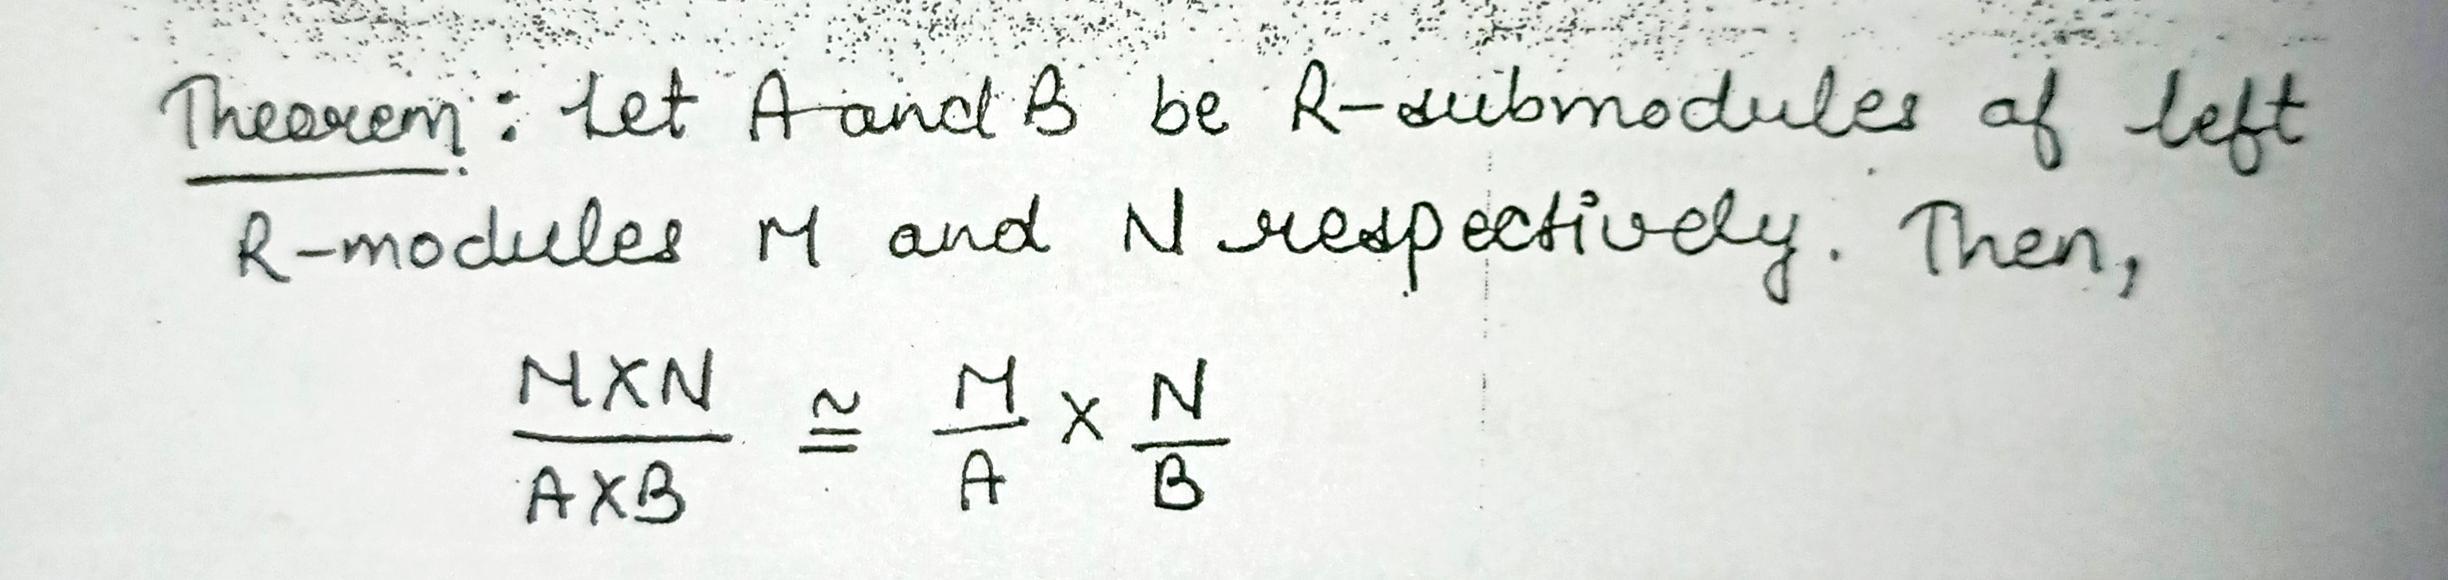 Theorem: Let A and B be R-submodules of left
R-modules M and N respectively. Then,
M×N / A×B ≅ M/A × N/B